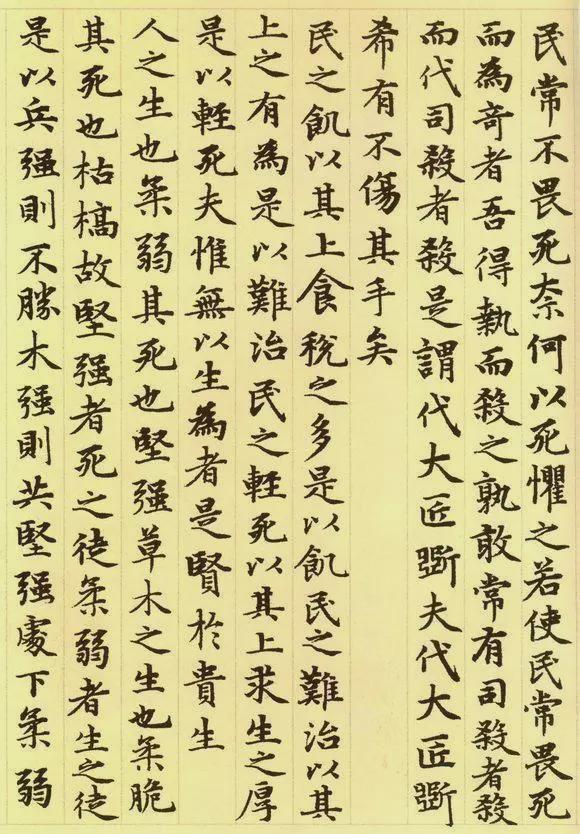 民常不畏死奈何以死懼之若使民常畏死
而為奇者吾得執而殺之孰敢常有司殺者殺
而代司殺者殺是謂代大匠斲夫代大匠斲
希有不傷其手矣
民之飢以其上食稅之多是以飢民之難治以其
上之有為是以難治民之輕死以其上求生之厚
是以輕死夫惟無以生為者是賢於貴生
人之生也柔弱其死也堅强草木之生也柔脆
其死也枯槁故堅强者死之徒柔弱者生之徒
是以兵强則不勝木强則共堅强處下柔弱